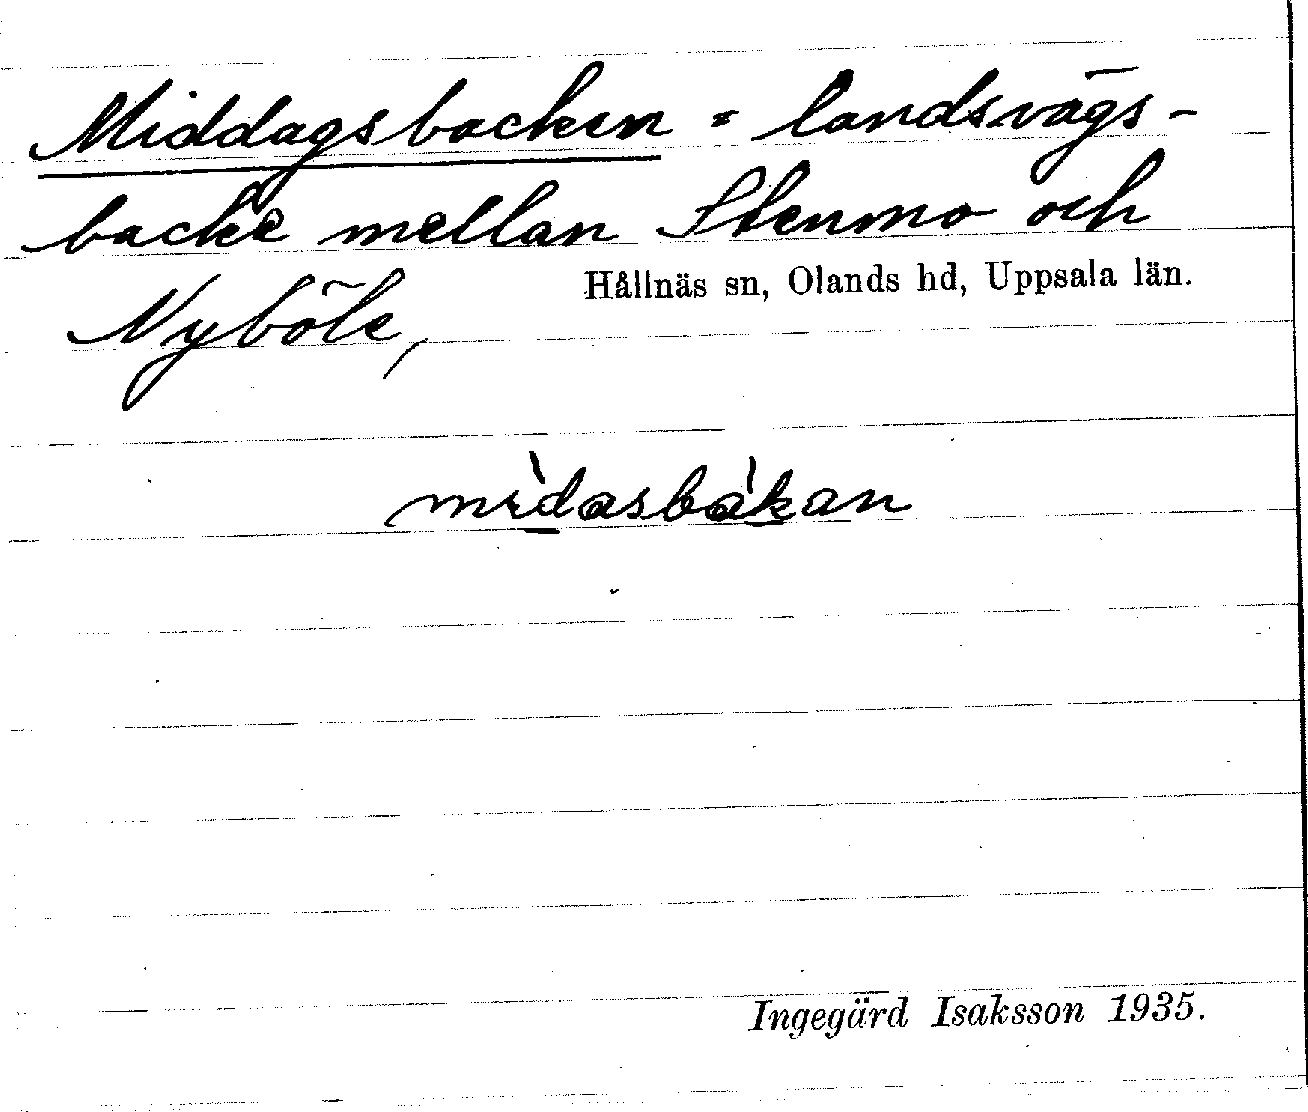 Middagsbacken = landsvägs-
backe mellan Stenmo och
Hållnäs sn, Olands hd, Uppsala län.
Nyböle,
mìdasbàkan
Ingegärd Isaksson 1935.